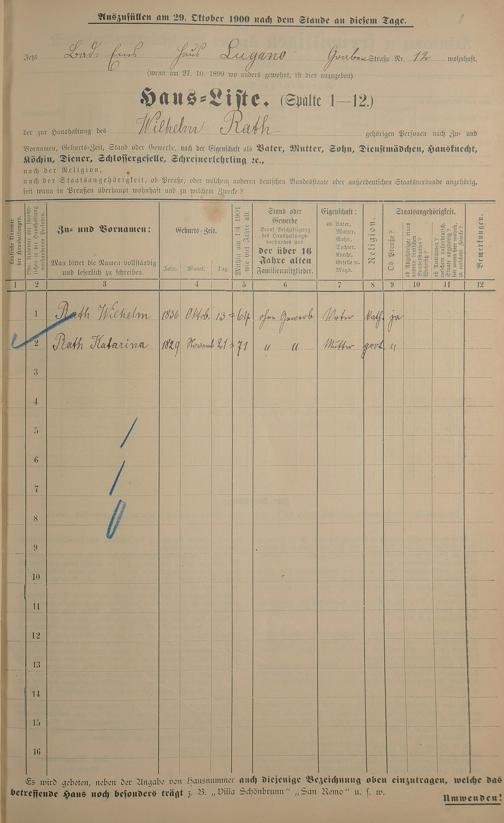 Auszufüllen am 29. Oktober 1900 nach dem Stande an diesem Tage.
Jetz Bad Ems Haus Lugano Graben Straße Nr. 12 wohnhaft.
(wenn am 27. 10. 1899 wo anders gewohnt, ist dies anzugeben)
Haus-Liste. (Spalte 1—12.)
der zur Haushaltung des Wilhelm Rath gehörigen Personen nach Zu- und
Vornamen, Geburts-Zeit, Stand oder Gewerbe, nach der Eigenschaft als Vater, Mutter, Sohn, Dienstmädchen, Hausknecht,
Köchin, Diener, Schlossergeselle, Schreinerlehrling ec.,
nach der Religion,
nach der Staatsangehörigkeit, ob Preuße, oder welchen anderen deutschen Bundesstaate oder außerdeutschen Staatsverbande angehörig,
seit wann in Preußen überhaupt wohnhaft und zu welchem Zwecke?
Zu- und Vornamen:
Man bittet die Namen vollständig
und leserlich zu schreiben.
Geburts-Zeit.
Jahr. Monat. Tag.
Stand oder
Gewerbe
der über 16
Jahre alten
Familienmitglieder.
Eigenschaft:
ob Vater,
Mutter,
Sohn,
Tochter,
Knecht,
Geselle
Magd.
Religion.
Staatsangehörigkeit.
Ob Preuße?
Bemerkungen.
1 2 3 4 5 6 7 8 9 10 11 12
1 Rath Wilhelm 1836 Oktob. 13 64 ohne Gewerb Vater Kath. ja
2 Rath Katarina 1829 Novemb 21 71 " " Mutter prot. "
3
4
5
6
7
8
9
10
11
12
13
14
15
16
Es wird gebeten, neben der Angabe von Hausnummer auch diejenige Bezeichnung oben einzutragen, welche das
betreffende Haus noch besonders trägt z. B. „Villa Schönbrunn" „San Remo" u. s. w.
Umwenden!